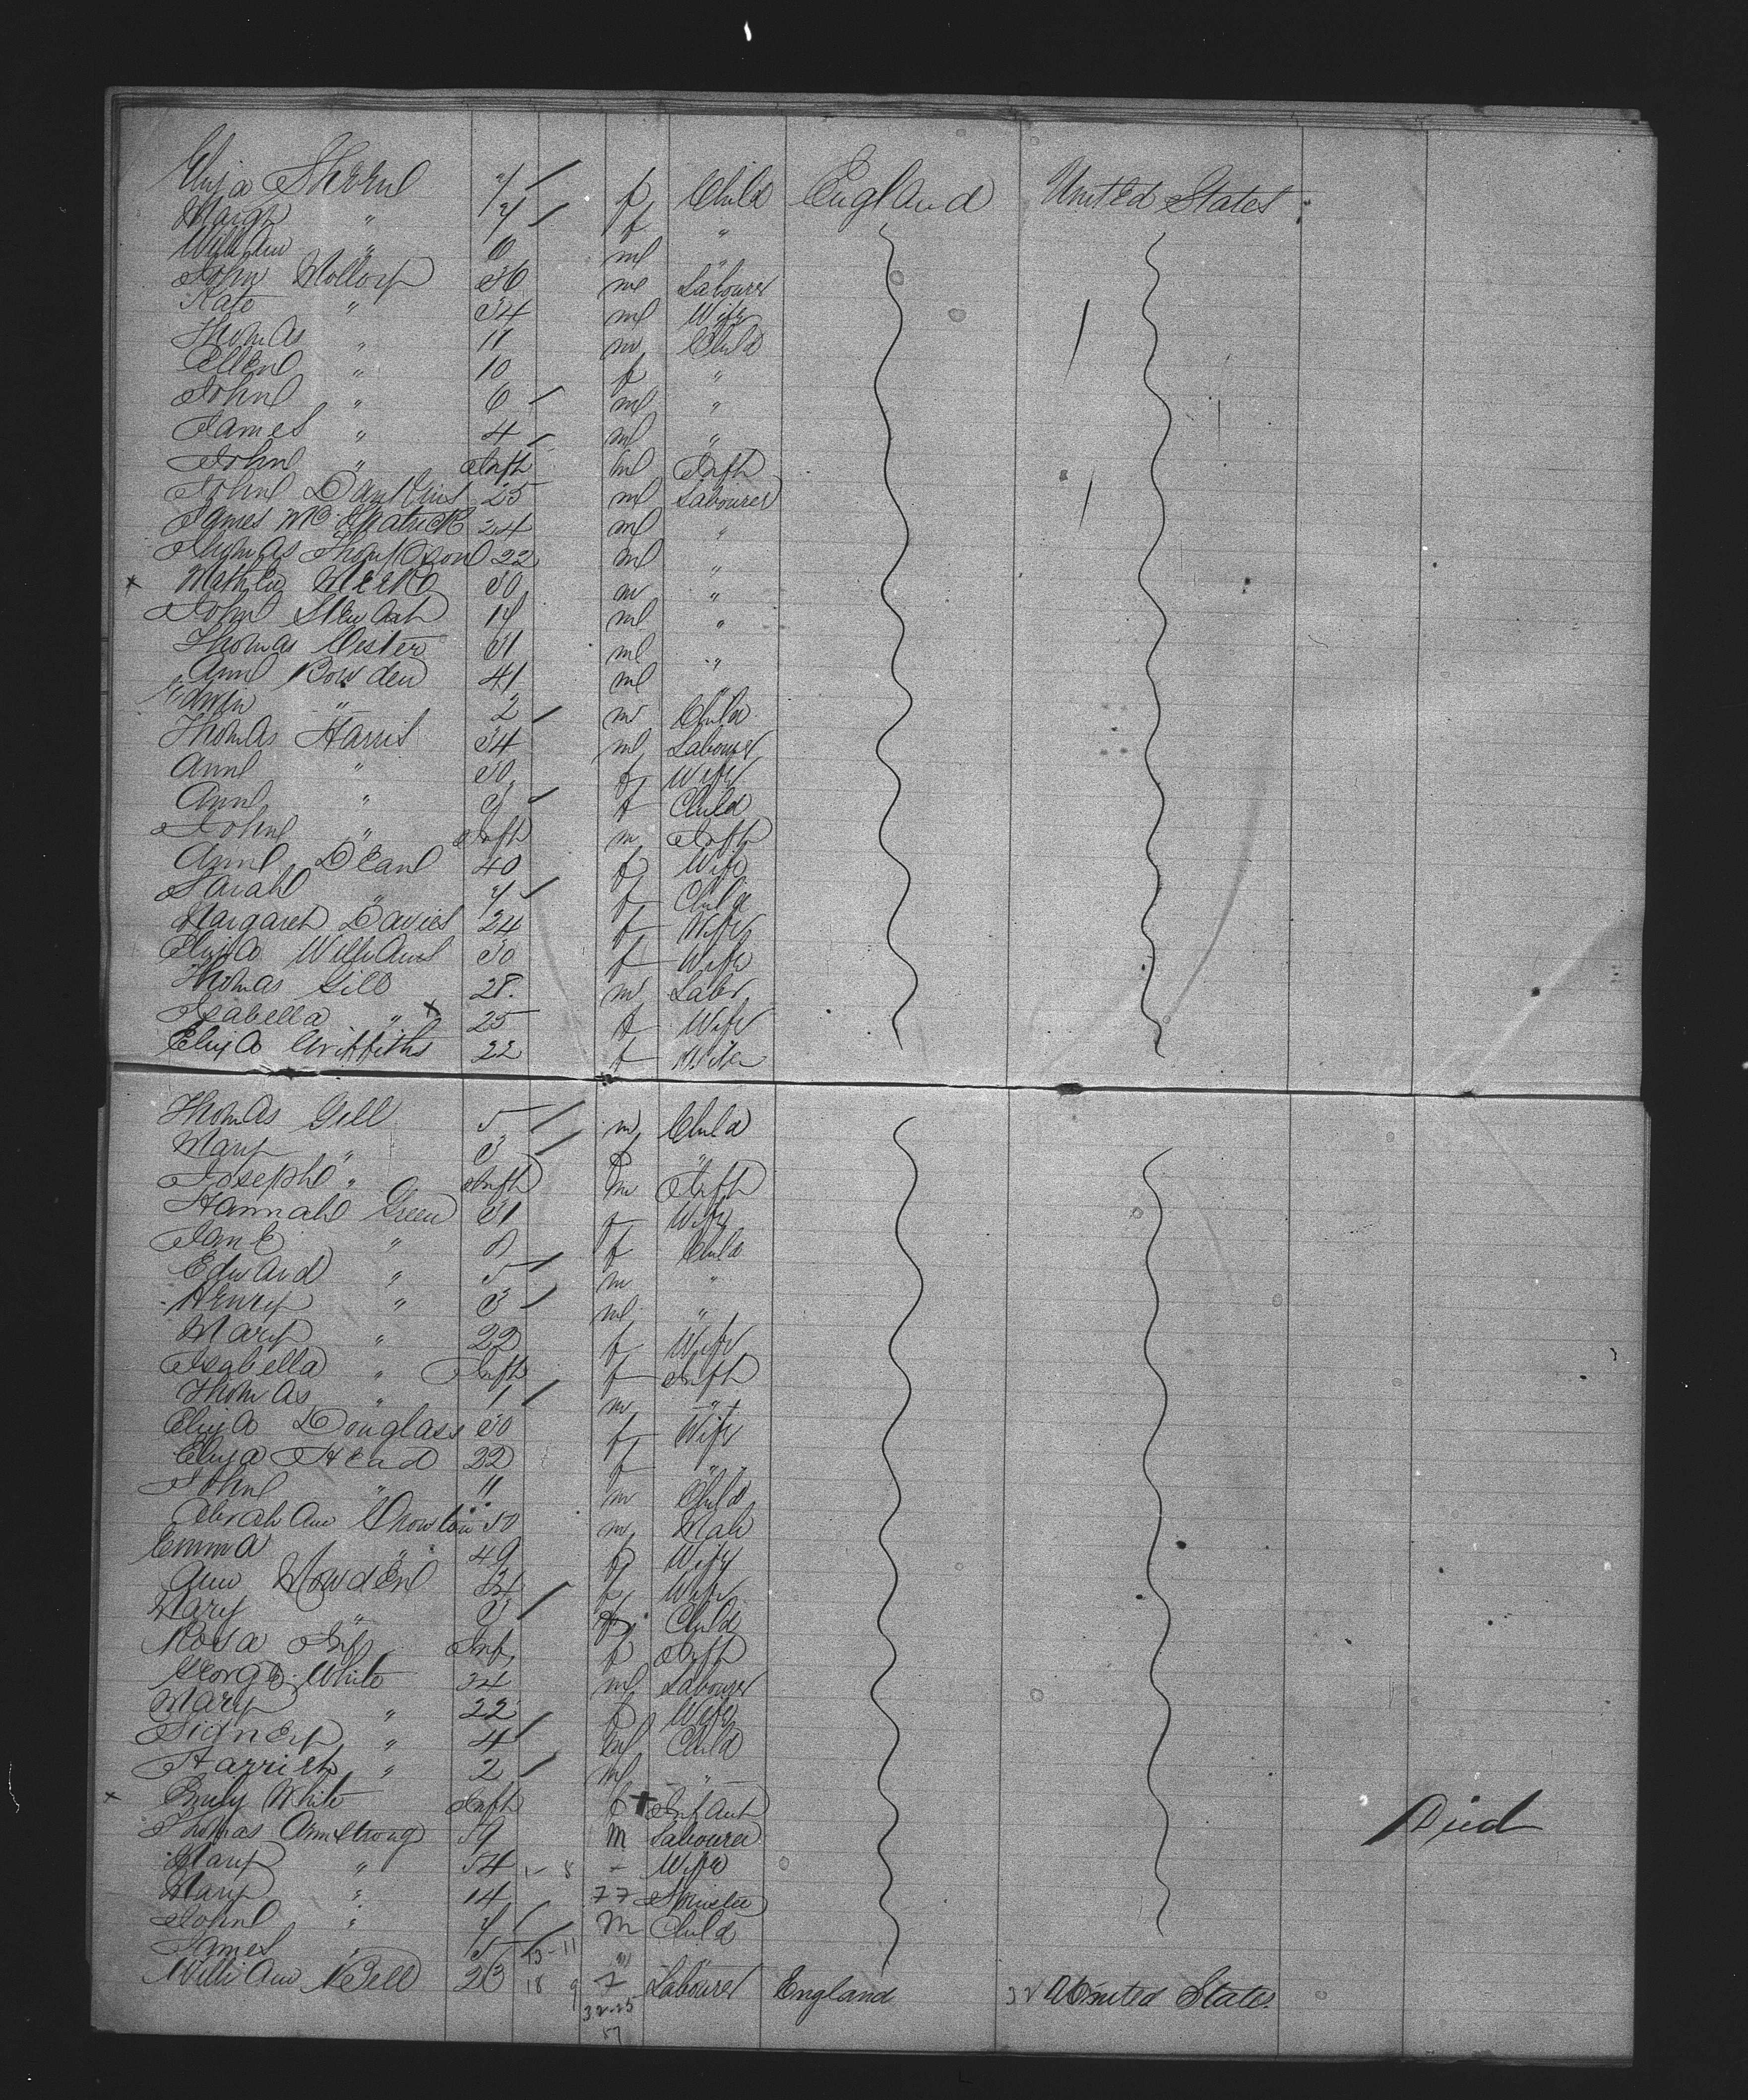 Eliza Sherul 7 f Child England United States
Margt " 7 f "
William " 6 m "
John Mollory 36 m Labourer
Kate " 34 m Wife
Thomas " 11 m Child
Ellen " 10 f "
John " 6 m "
James " 4 m "
John " Infh m Infh
John Dawkins 25 m Labourer
James 24 m "
Thomas Thompson 22 m "
x Mathew 30 m "
John Stewart 17 m "
Thomas Oester 31 m "
Ann Bowden 41 m "
Edwin " 2 m Child
Thomas Harris 34 m Labourer
Ann " 30 f Wife
Ann " 9 f Child
John " Infh m Infh
Ann Dean 40 f Wife
Sarah " 7 f Child
Margaret Davies 24 f Wife
Eliza Williams 30 f Wife
Thomas Gill 28. m Labr
Isabella " x 25 f Wife
Eliza Griffiths 22 f Wife
Thomas Gill 5 m Child
Mary " 3 f "
Joseph " Infh m Infh
Hannah Green 31 f Wife
Jane " 8 f Child
Edward " 5 m "
Henry " 3 m "
Mary " 22 f Wife
Isabella " Infh f Infh
Thomas " 1 m "
Eliza Douglass 30 f Wife
Eliza Head 22 f "
John " 11 m Child
Abraham 50 m Male
Emma " 49 f Wife
Ann Howden 34 f Wife
Mary " 3 f Child
Rosa Inf Inf f Infh
George White 34 m Labourer
Mary " 22 f Wife
Sidney " 4 m Child
Harrieth " 2 m "
x White Infh f + Infant Died
Thomas Armstrong 59 m Labourer
Mary " 54 1 - 8 - Wife
Mary " 14 77 Spinster
John " 7 m Child
James " 5 13-11 " "
William Bell 23 18 9 7 Labourer England 32 United States
32-25
57